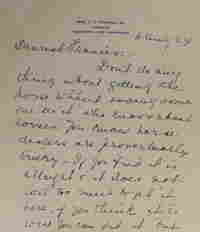 6 Aug 24
Dearest Francis:-
Don't do any
thing about getting the
horse without having some
one with who knows about
horses. You know horse
dealers are proverbially
tricky. If you find it is
alright & it does not
cost too much to get it
here, if you think
you can get it